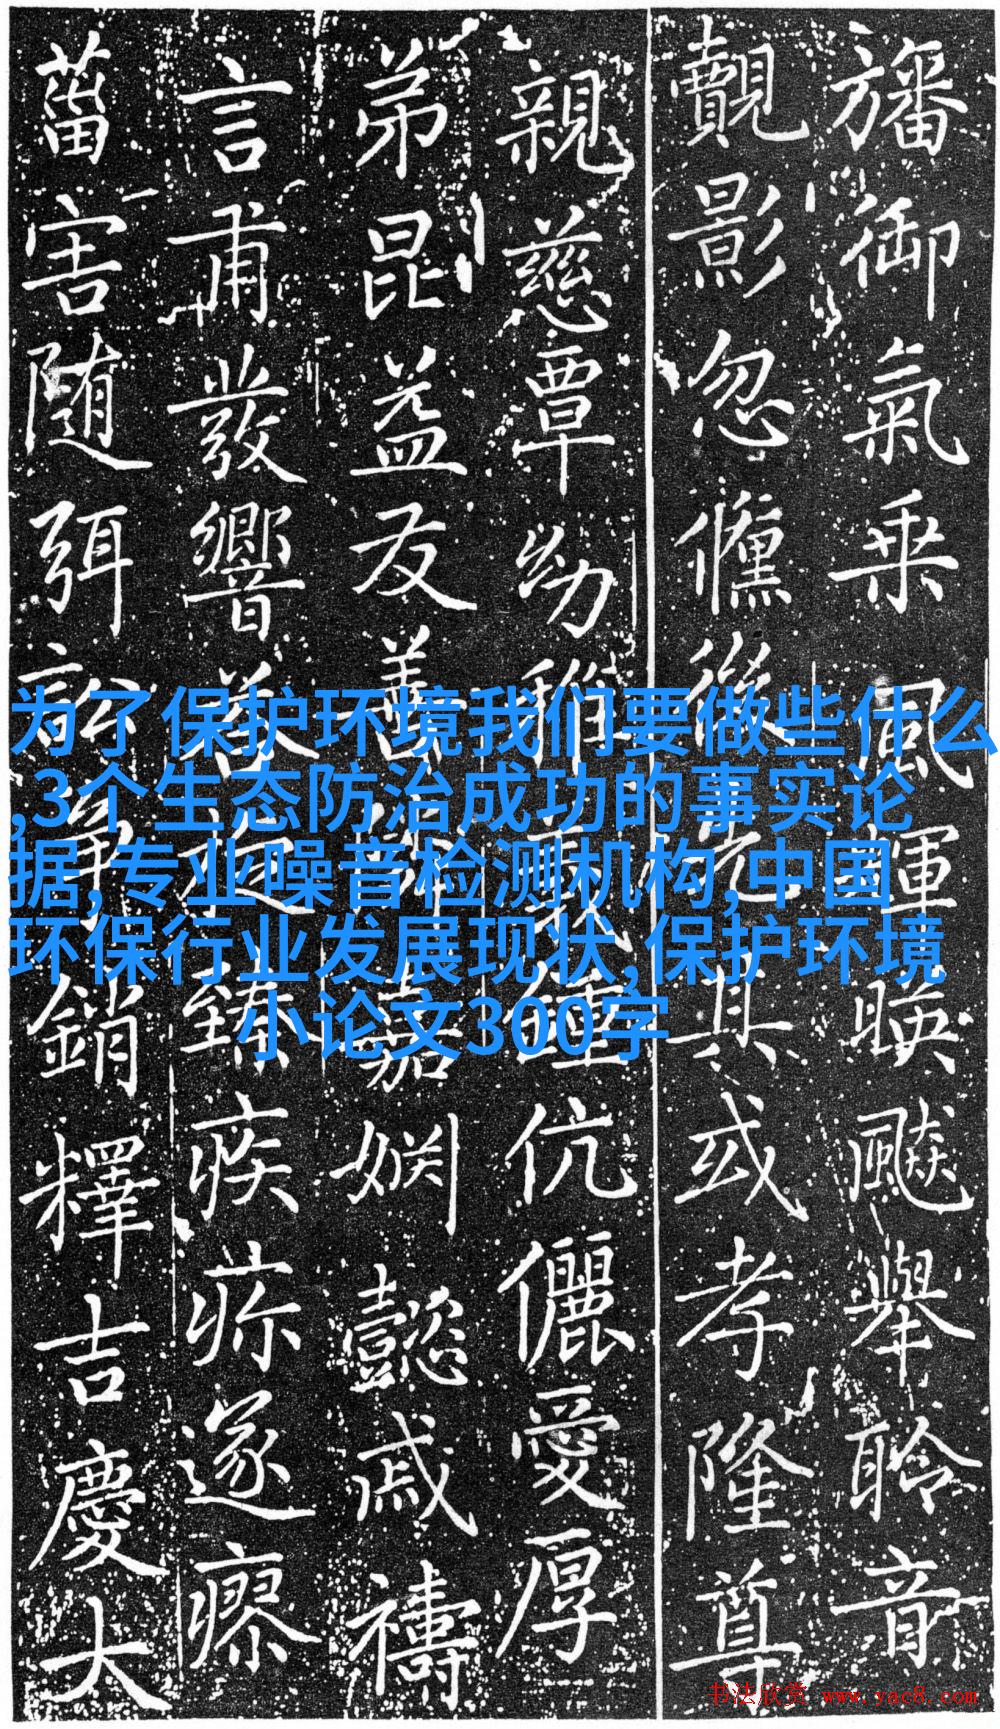 旛御氣乗風輝映飈舉聆音
覿影忽儵後先其或孝隆尊
親慈覃幼稚義鍾伉儷愛厚
弟昆益友善嘉姻懿戚禱
言甫發響臻疾疹遂瘳
菑害随弭訟爭銷釋吉慶大
为了保护环境我们要做些什么
,3个生态防治成功的事实论
据,专业噪音检测机构,中国
环保行业发展现状,保护环境
小论文300字
书法欣赏 www.yac8.com